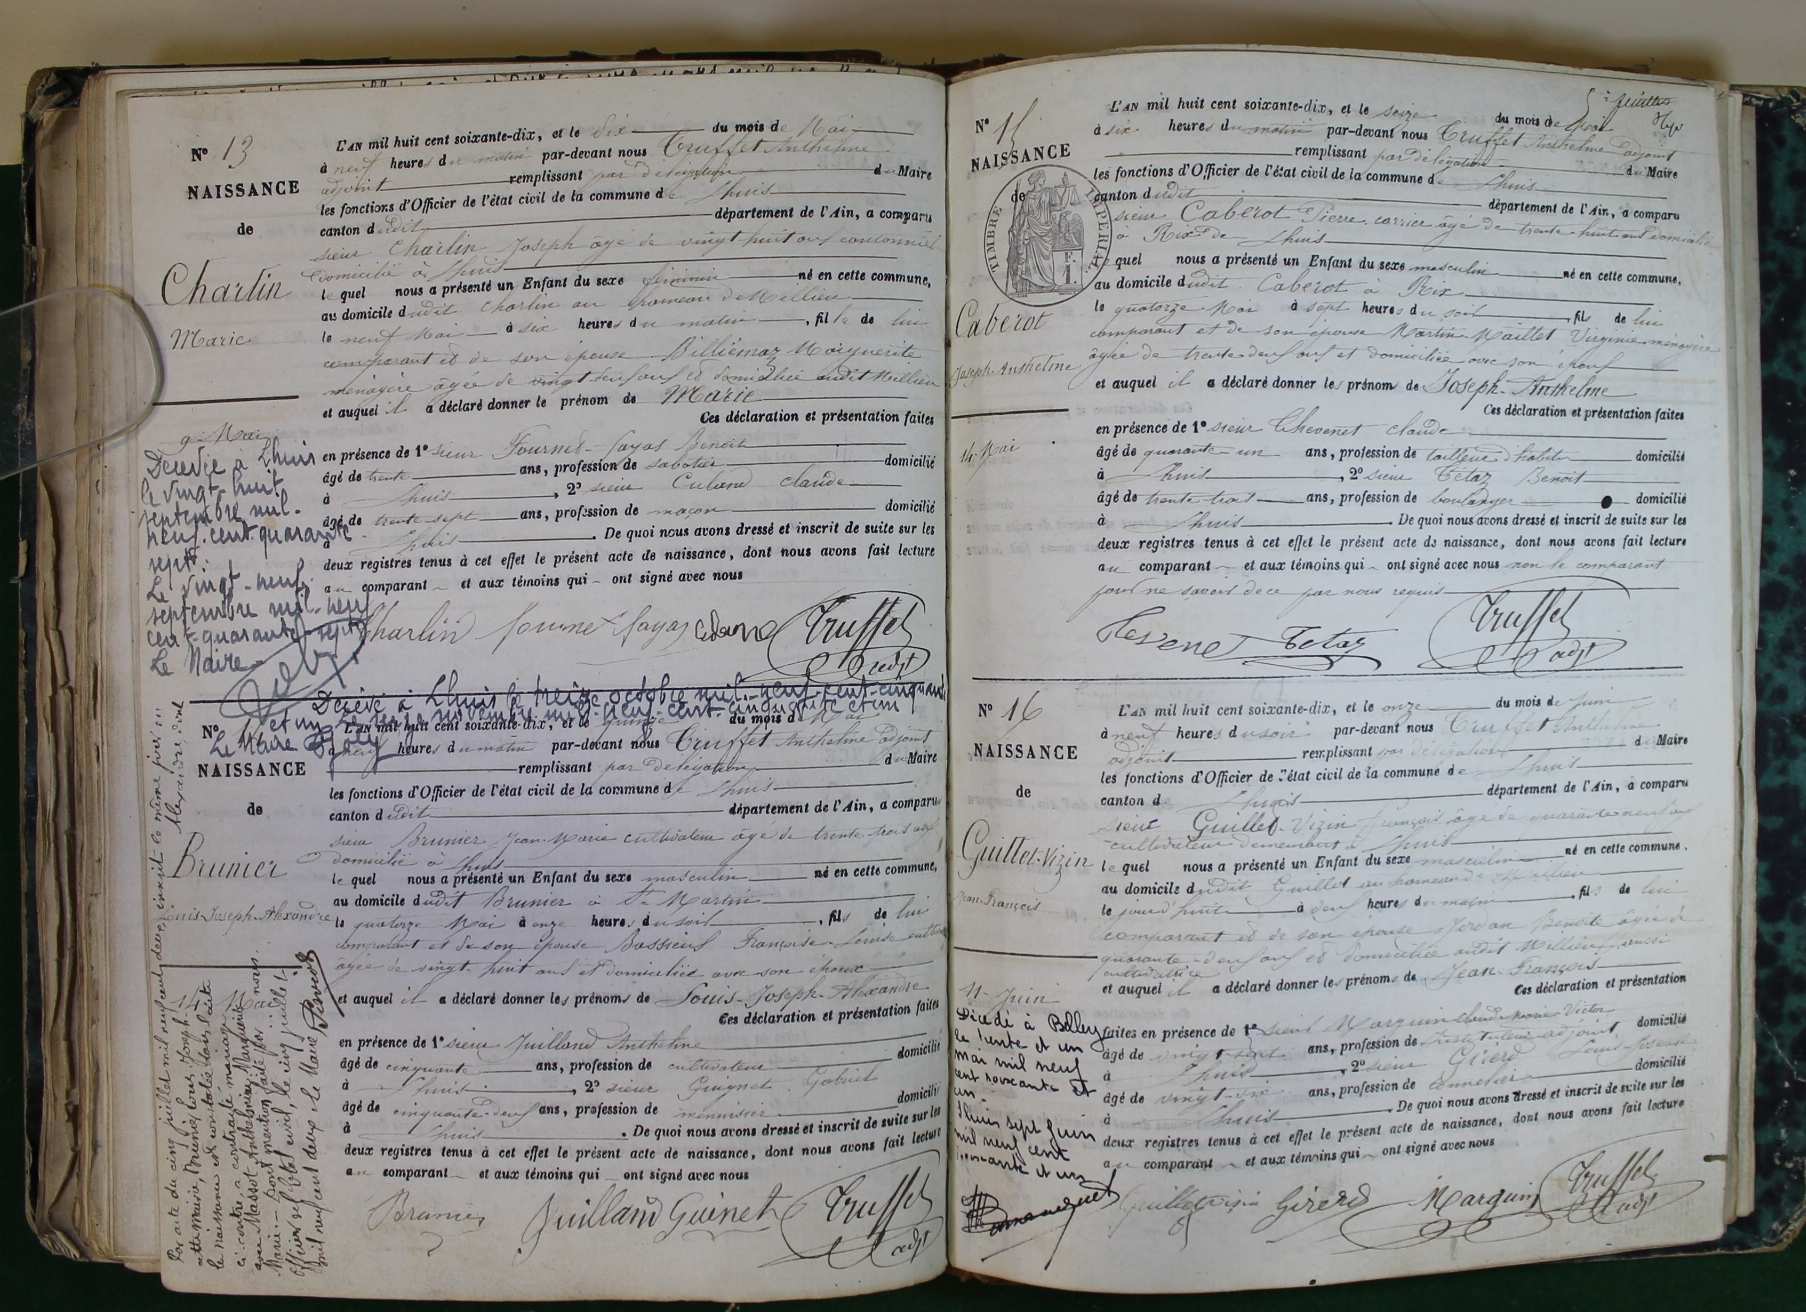 N° 13
NAISSANCE
de
Charlin
Marie
9 Mai
Décédée à Lhuis
le vingt-huit
septembre mil-
neuf-cent-quarante
sept.
Le vingt-neuf
septembre mil-neuf
cent-quarante-sept
Le Maire
L'AN mil huit cent soixante-dix, et le dix du mois de Mai
à neuf heures du matin par-devant nous Truffet Anthelme
adjoint remplissant par délégation du Maire
les fonctions d'Officier de l'état civil de la commune de Lhuis
canton dudit département de l'Ain, a comparu
sieur Charlin Joseph âgé de vingt huit ans cantonnier
domicilié à Lhuis
lequel nous a présenté un Enfant du sexe féminin né en cette commune,
au domicile dudit Charlin au hameau de Millieu
le neuf Mai à six heures du matin, fille de lui
comparant et de son épouse Billiémaz Marguerite
ménagère âgée de vingt-deux ans et domiciliée audit Millieu
et auquel il a déclaré donner le prénom de Marie
Ces déclaration et présentation faites
en présence de 1° sieur Fournet-Fayas Benoit
âgé de trente ans, profession de sabotier domicilié
à Lhuis, 2° sieur Culand claude
âgé de trente-sept ans, profession de maçon domicilié
à Lhuis. De quoi nous avons dressé et inscrit de suite sur les
deux registres tenus à cet effet le présent acte de naissance, dont nous avons fait lecture
au comparant et aux témoins qui ont signé avec nous
Charlin fournet fayas Truffet
adjt
Décédé à Lhuis le treize octobre mil-neuf-cent-cinquante
et un novembre mil-neuf-cent-cinquante et un
Le Maire
N°
NAISSANCE
de
Brunier
Louis-Joseph-Alexandre
14 Mai
Par acte du cinq juillet mil neuf cent deux, inscrit le même jour en
cette Mairie, Brunier Louis Joseph Alexandre dont
la naissance est constatée dans l'acte
ci-contre a contracté mariage
avec Massot Anthelmine Marguerite
Marie. – dont mention faite par nous
Officier de l'état civil, le cinq juillet
mil neuf cent deux. Le Maire
L'AN mil huit cent soixante-dix, et le quinze du mois de Mai
à neuf heures du matin par-devant nous Truffet Anthelme adjoint
remplissant par délégation du Maire
les fonctions d'Officier de l'état civil de la commune de Lhuis
canton dudit département de l'Ain, a comparu
sieur Brunier Jean-Marie cultivateur âgé de trente trois ans
domicilié à Lhuis
lequel nous a présenté un Enfant du sexe masculin né en cette commune,
au domicile dudit Brunier à St Martin
le quatorze Mai à onze heures du soir, fils de lui
comparant et de son épouse Bassieux Françoise-Louise
âgée de vingt huit ans et domiciliée avec son époux
et auquel il a déclaré donner les prénoms de Louis-Joseph-Alexandre
Ces déclaration et présentation faites
en présence de 1° sieur Juilland Anthelme
âgé de cinquante ans, profession de cultivateur domicilié
à Lhuis, 2° sieur Guignet Gabriel
âgé de cinquante-deux ans, profession de menuisier domicilié
à Lhuis. De quoi nous avons dressé et inscrit de suite sur les
deux registres tenus à cet effet le présent acte de naissance, dont nous avons fait lecture
au comparant et aux témoins qui ont signé avec nous
Brunier Juilland Guinet Truffet
adjt
5e feuillet
N° 15
NAISSANCE
de
TIMBRE IMPERIAL
F.
1
Caberot
Joseph-Anthelme
14 Mai
L'AN mil huit cent soixante-dix, et le seize du mois de Mai
à six heures du matin par-devant nous Truffet Anthelme adjoint
remplissant par délégation du Maire
les fonctions d'Officier de l'état civil de la commune de Lhuis
canton dudit département de l'Ain, a comparu
sieur Caberot Pierre carrier âgé de trente-huit ans domicilié
à Rix de Lhuis
lequel nous a présenté un Enfant du sexe masculin né en cette commune,
au domicile dudit Caberot à Rix
le quatorze Mai à sept heures du soir, fils de lui
comparant et de son épouse Martin Maillet Virginie ménagère
âgée de trente-deux ans et domiciliée avec son époux
et auquel il a déclaré donner les prénom de Joseph-Anthelme
Ces déclaration et présentation faites
en présence de 1° sieur Chevenet claude
âgé de quarante un ans, profession de tailleur d'habits domicilié
à Lhuis, 2° sieur Tétaz Benoit
âgé de trente-trois ans, profession de boulanger domicilié
à Lhuis. De quoi nous avons dressé et inscrit de suite sur les
deux registres tenus à cet effet le présent acte de naissance, dont nous avons fait lecture
au comparant et aux témoins qui ont signé avec nous non le comparant
pour ne savoir de ce par nous requis
Tetaz Truffet
adjt
N° 16
NAISSANCE
de
Guillet-Vizin
Jean-François
11 Juin
Décédé à Belley
le trente et un
mai mil neuf
cent soixante et
un.
Lhuis sept juin
mil neuf cent
soixante et un
L'AN mil huit cent soixante-dix, et le onze du mois de Juin
à neuf heures du soir par-devant nous Truffet Anthelme
adjoint remplissant par délégation du Maire
les fonctions d'Officier de l'état civil de la commune de Lhuis
canton d Lhuis département de l'Ain, a comparu
sieur Guillet-Vizin françois âgé de quarante-neuf ans
cultivateur demeurant à Lhuis
lequel nous a présenté un Enfant du sexe masculin né en cette commune,
au domicile dudit Guillet au hameau de Millieu
le jourd'hui à deux heures du matin, fils de lui
comparant et de son épouse Benoite âgée de
quarante-deux ans et domiciliée audit Millieu aussi
cultivatrice
et auquel il a déclaré donner les prénoms de Jean-François
Ces déclaration et présentation
faites en présence de 1° sieur Marguin Victor
âgé de vingt-sept ans, profession de Instituteur adjoint domicilié
à Lhuis, 2° sieur Girerd Louis-Joseph
âgé de vingt-six ans, profession de domicilié
à Lhuis. De quoi nous avons dressé et inscrit de suite sur les
deux registres tenus à cet effet le présent acte de naissance, dont nous avons fait lecture
au comparant et aux témoins qui ont signé avec nous
Guilletvizin Girerd Marguin Truffet
adjt